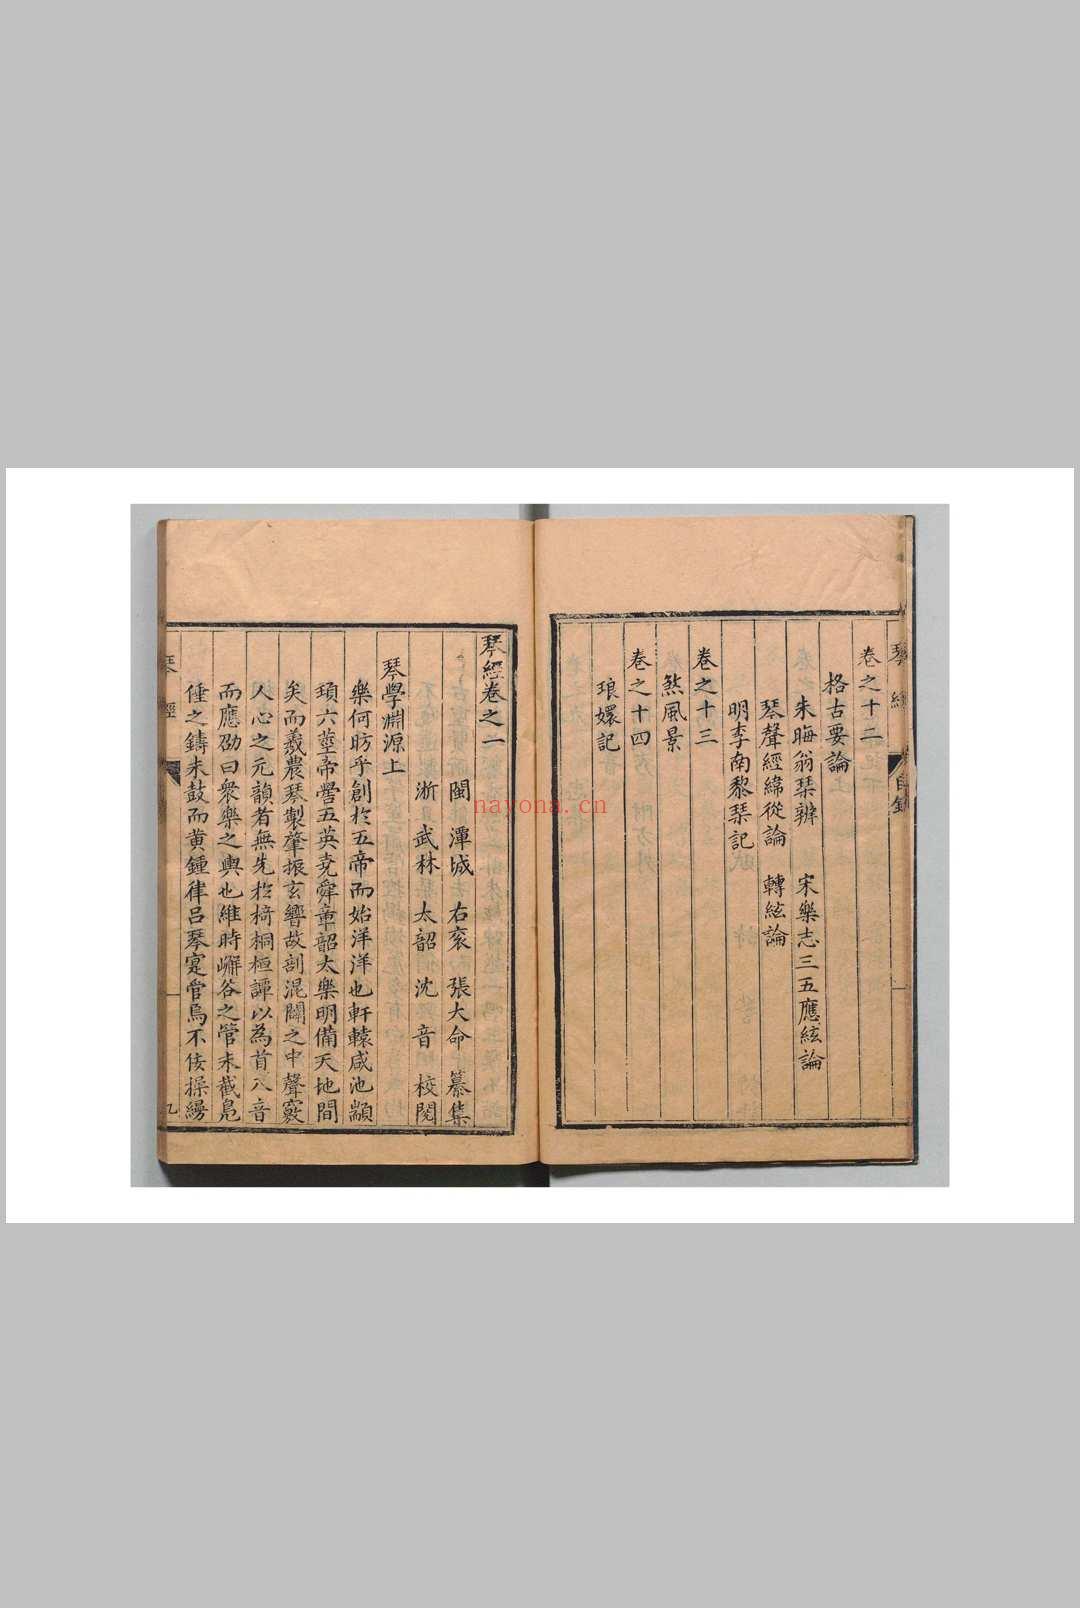 琴經
目錄
卷之十二
格古要論上
朱晦翁琹辨　宋樂志三五應絃論
琴聲經緯從論　轉絃論
明李南黎琹記
卷之十三
煞風景
卷之十四
琅嬛記
琴經卷之一
閩　潭城　右袞　張大命　纂集
浙　武林　太韶　沈　音　校閱
琴學淵源上
樂何昉乎創於五帝而始洋洋也軒轅咸池顓
頊六莖帝嚳五英堯舜章韶大樂明備天地間
矣而羲農琴製肇振玄響故剖混闢之中聲竅
人心之元韻者無先於椅桐桓譚以為首八音
而應劭曰衆樂之輿也維時嶰谷之管未截鳧
倕之鑄未鼓而黄鍾律呂琴寔管焉不佞操縵
琴經
nayona.cn